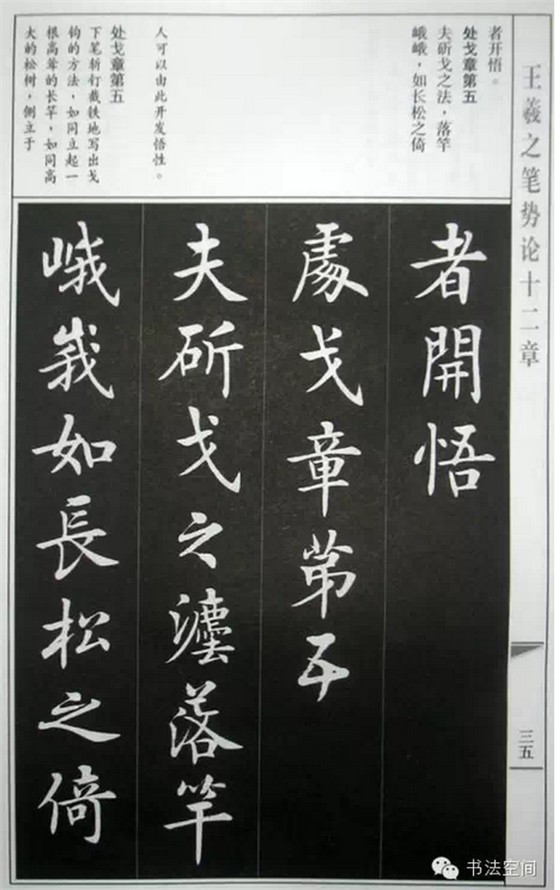 王羲之笔势论十二章
者开悟。
处戈章第五
夫斫戈之法，落竿
峨峨，如长松之倚
人可以由此开发悟性。
处戈章第五
下笔斩钉截铁地写出戈
钩的方法，如同立起一
根高耸的长竿，如同高
大的松树，侧立于
者開悟
處戈章苐五
夫斫戈之灋落竿
峨峩如長松之倚
三五
书法空间